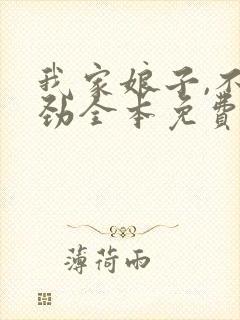 我家娘子,不
劲全本免費
薄荷雨